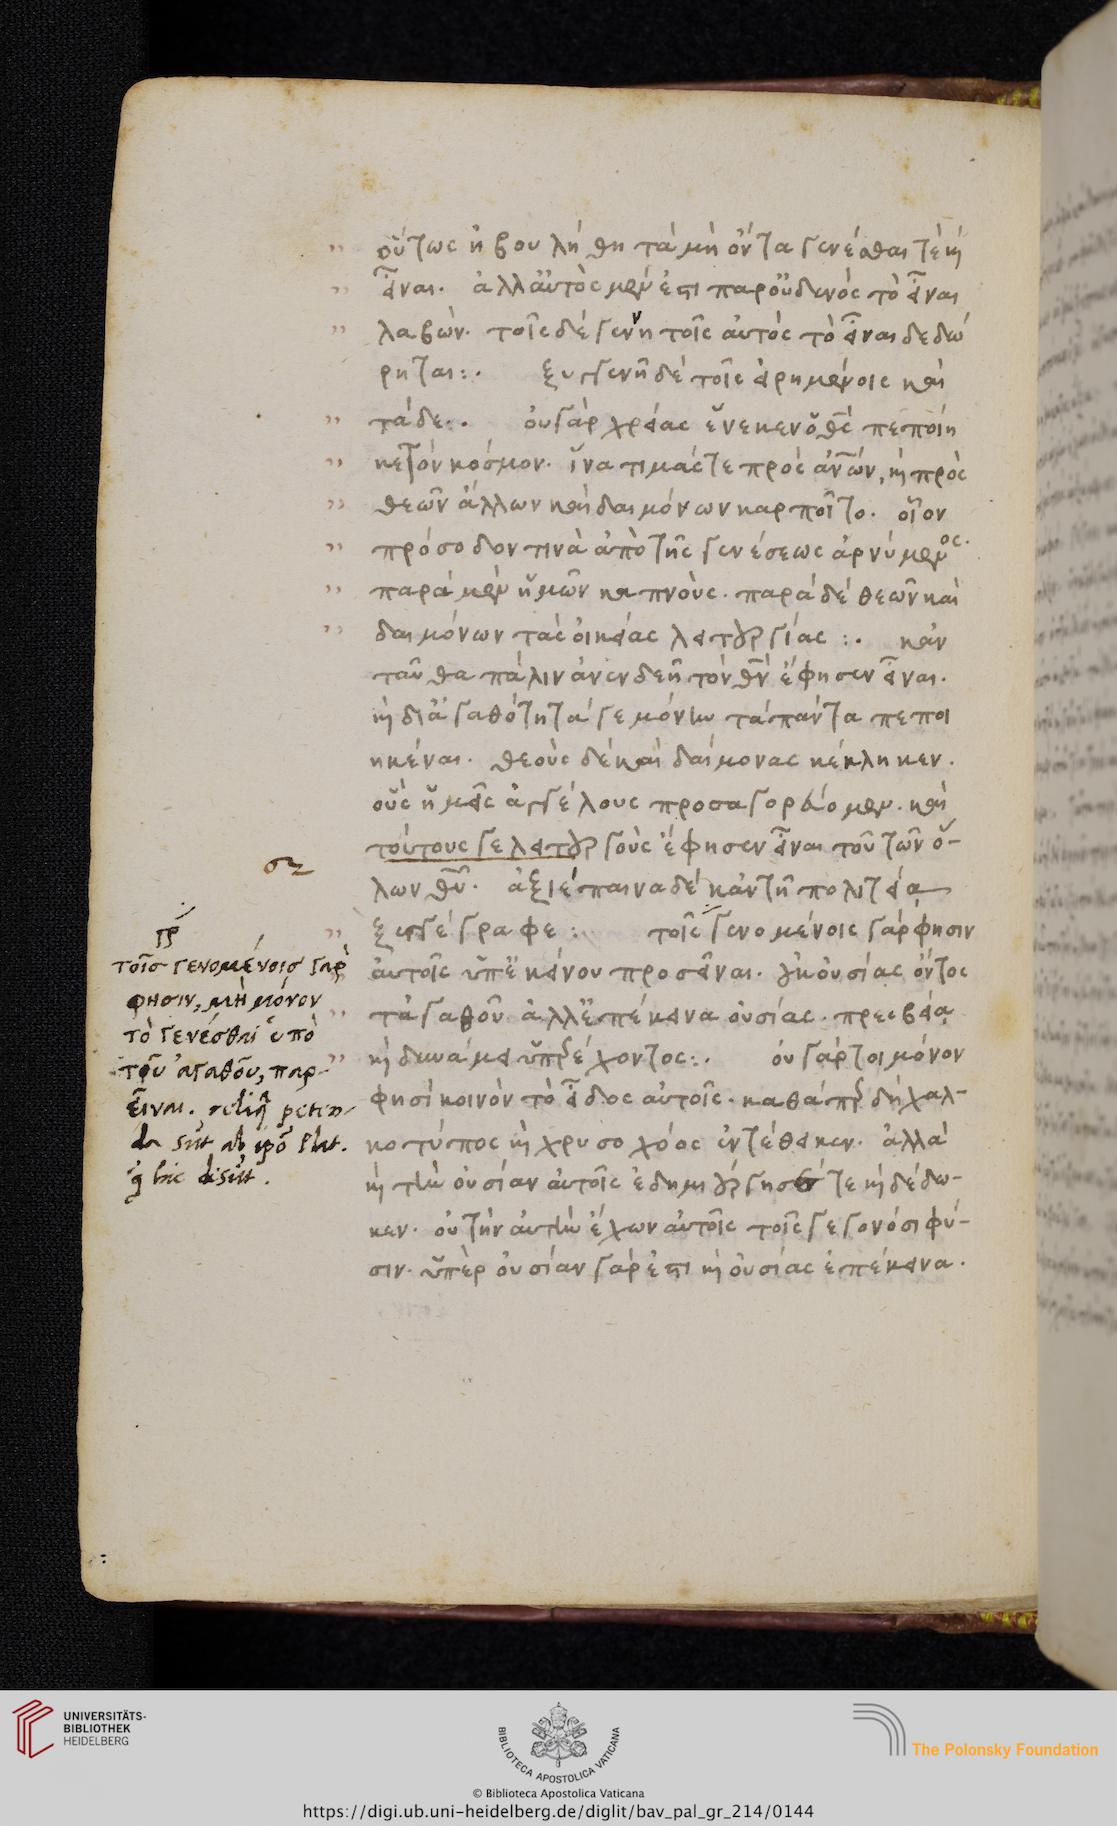 οὕτως ἠβουλήθη τὰ μὴ ὄντα γενέσθαι τὲ κ(αὶ)
εἶναι. ἀλλ' αὐτὸς μὲν ἔτι παρ' οὐδενὸς τὸ εἶναι
λαβὼν. τοῖς δὲ γεννητοῖς αὐτὸς τὸ εἶναι δεδώ
ρηται:. ξυγγενῆ δὲ τοῖς εἰρημένοις καὶ
τάδε:. οὐ γὰρ χρείας ἕνεκεν ὁ θς πεποίη
κε τὸν κόσμον. ἵνα τιμάς τε πρὸς ἀνων, κ(αὶ) πρὸς
θεῶν ἄλλων καὶ δαιμόνων καρποῖτο. οἷον
πρόσοδόν τινα ἀπὸ τῆς γενέσεως ἀρνύμενος.
παρὰ μὲν ἡμῶν καπνοὺς. παρὰ δὲ θεῶν καὶ
δαιμόνων τὰς οἰκείας λειτουργίας:. κἀν
ταῦθα πάλιν ἀνενδεῆ τὸν θν ἔφησεν εἶναι.
κ(αὶ) δι' ἀγαθότητά γε μόνην τὰ πάντα πεποι
ηκέναι. θεοὺς δὲ καὶ δαίμονας κέκληκεν.
οὓς ἡμεῖς ἀγγέλους προσαγορεύομεν. καὶ
τούτους γε λειτουργοὺς ἔφησεν εἶναι τοῦ τῶν ὅ-
λων θυ. ἀξιέπαινα δὲ κἀν τῇ πολιτεία
ξυγγέγραφε: τοῖς γενομένοις γάρ φησιν
αὐτοῖς ὑπ' ἐκείνου προσεῖναι. οὐκ οὐσίας ὄντος
τἀγαθοῦ ἀλλ' ἔτι ἐπέκεινα οὐσίας. πρεσβεία
κ(αὶ) δυνάμει ὑπερέχοντος:. οὐ γάρ τοι μόνον
φησὶ κοινὸν τὸ εἶδος αὐτοῖς. καθάπερ δὴ χαλ-
κοτύπος κ(αὶ) χρυσοχόος ἐντέθεικεν. ἀλλὰ
κ(αὶ) τὴν οὐσίαν αὐτοῖς ἐδημιούργησέ τε κ(αὶ) δέδω-
κεν. οὐ τὴν αὐτὴν ἔχων αὐτοῖς τοῖς γεγονόσι φύ-
σιν. ὑπὲρ οὐσίαν γάρ ἐστι κ(αὶ) οὐσίας ἐπέκεινα.
γρ
τοῖς γενομένοις γὰρ
φησιν, μὴ μόνον
τὸ γενέσθαι ὑπὸ
τοῦ ἀγαθοῦ, παρ-
εῖναι. reliq petĕn-
da sūt ab ipō Plat.
q hic desūt.
UNIVERSITÄTS-
BIBLIOTHEK
HEIDELBERG
BIBLIOTECA APOSTOLICA VATICANA
The Polonsky Foundation
© Biblioteca Apostolica Vaticana
https://digi.ub.uni-heidelberg.de/diglit/bav_pal_gr_214/0144